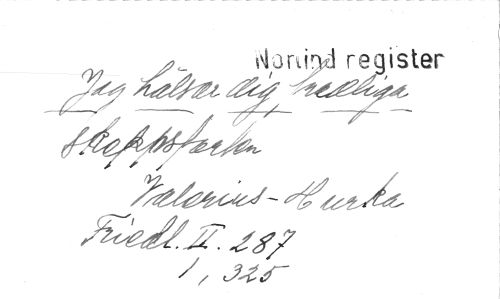 Norlind register
Jag hälsar dig, fredliga
skeppsfarten
Valerius-Hurka
Friedl. II. 287
1, 325